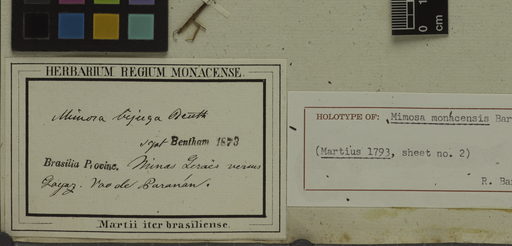 0 1
cm
HERBARIUM REGIUM MONACENSE.
Mimosa bijuga Benth
script Bentham 1873
Brasilia Provinc. Minas Geraës versus
Goyaz. Vao de Paranán.
Martii iter brasiliense.
HOLOTYPE OF: Mimosa monacensis Bar
(Martius 1793, sheet no. 2)
R. Ba